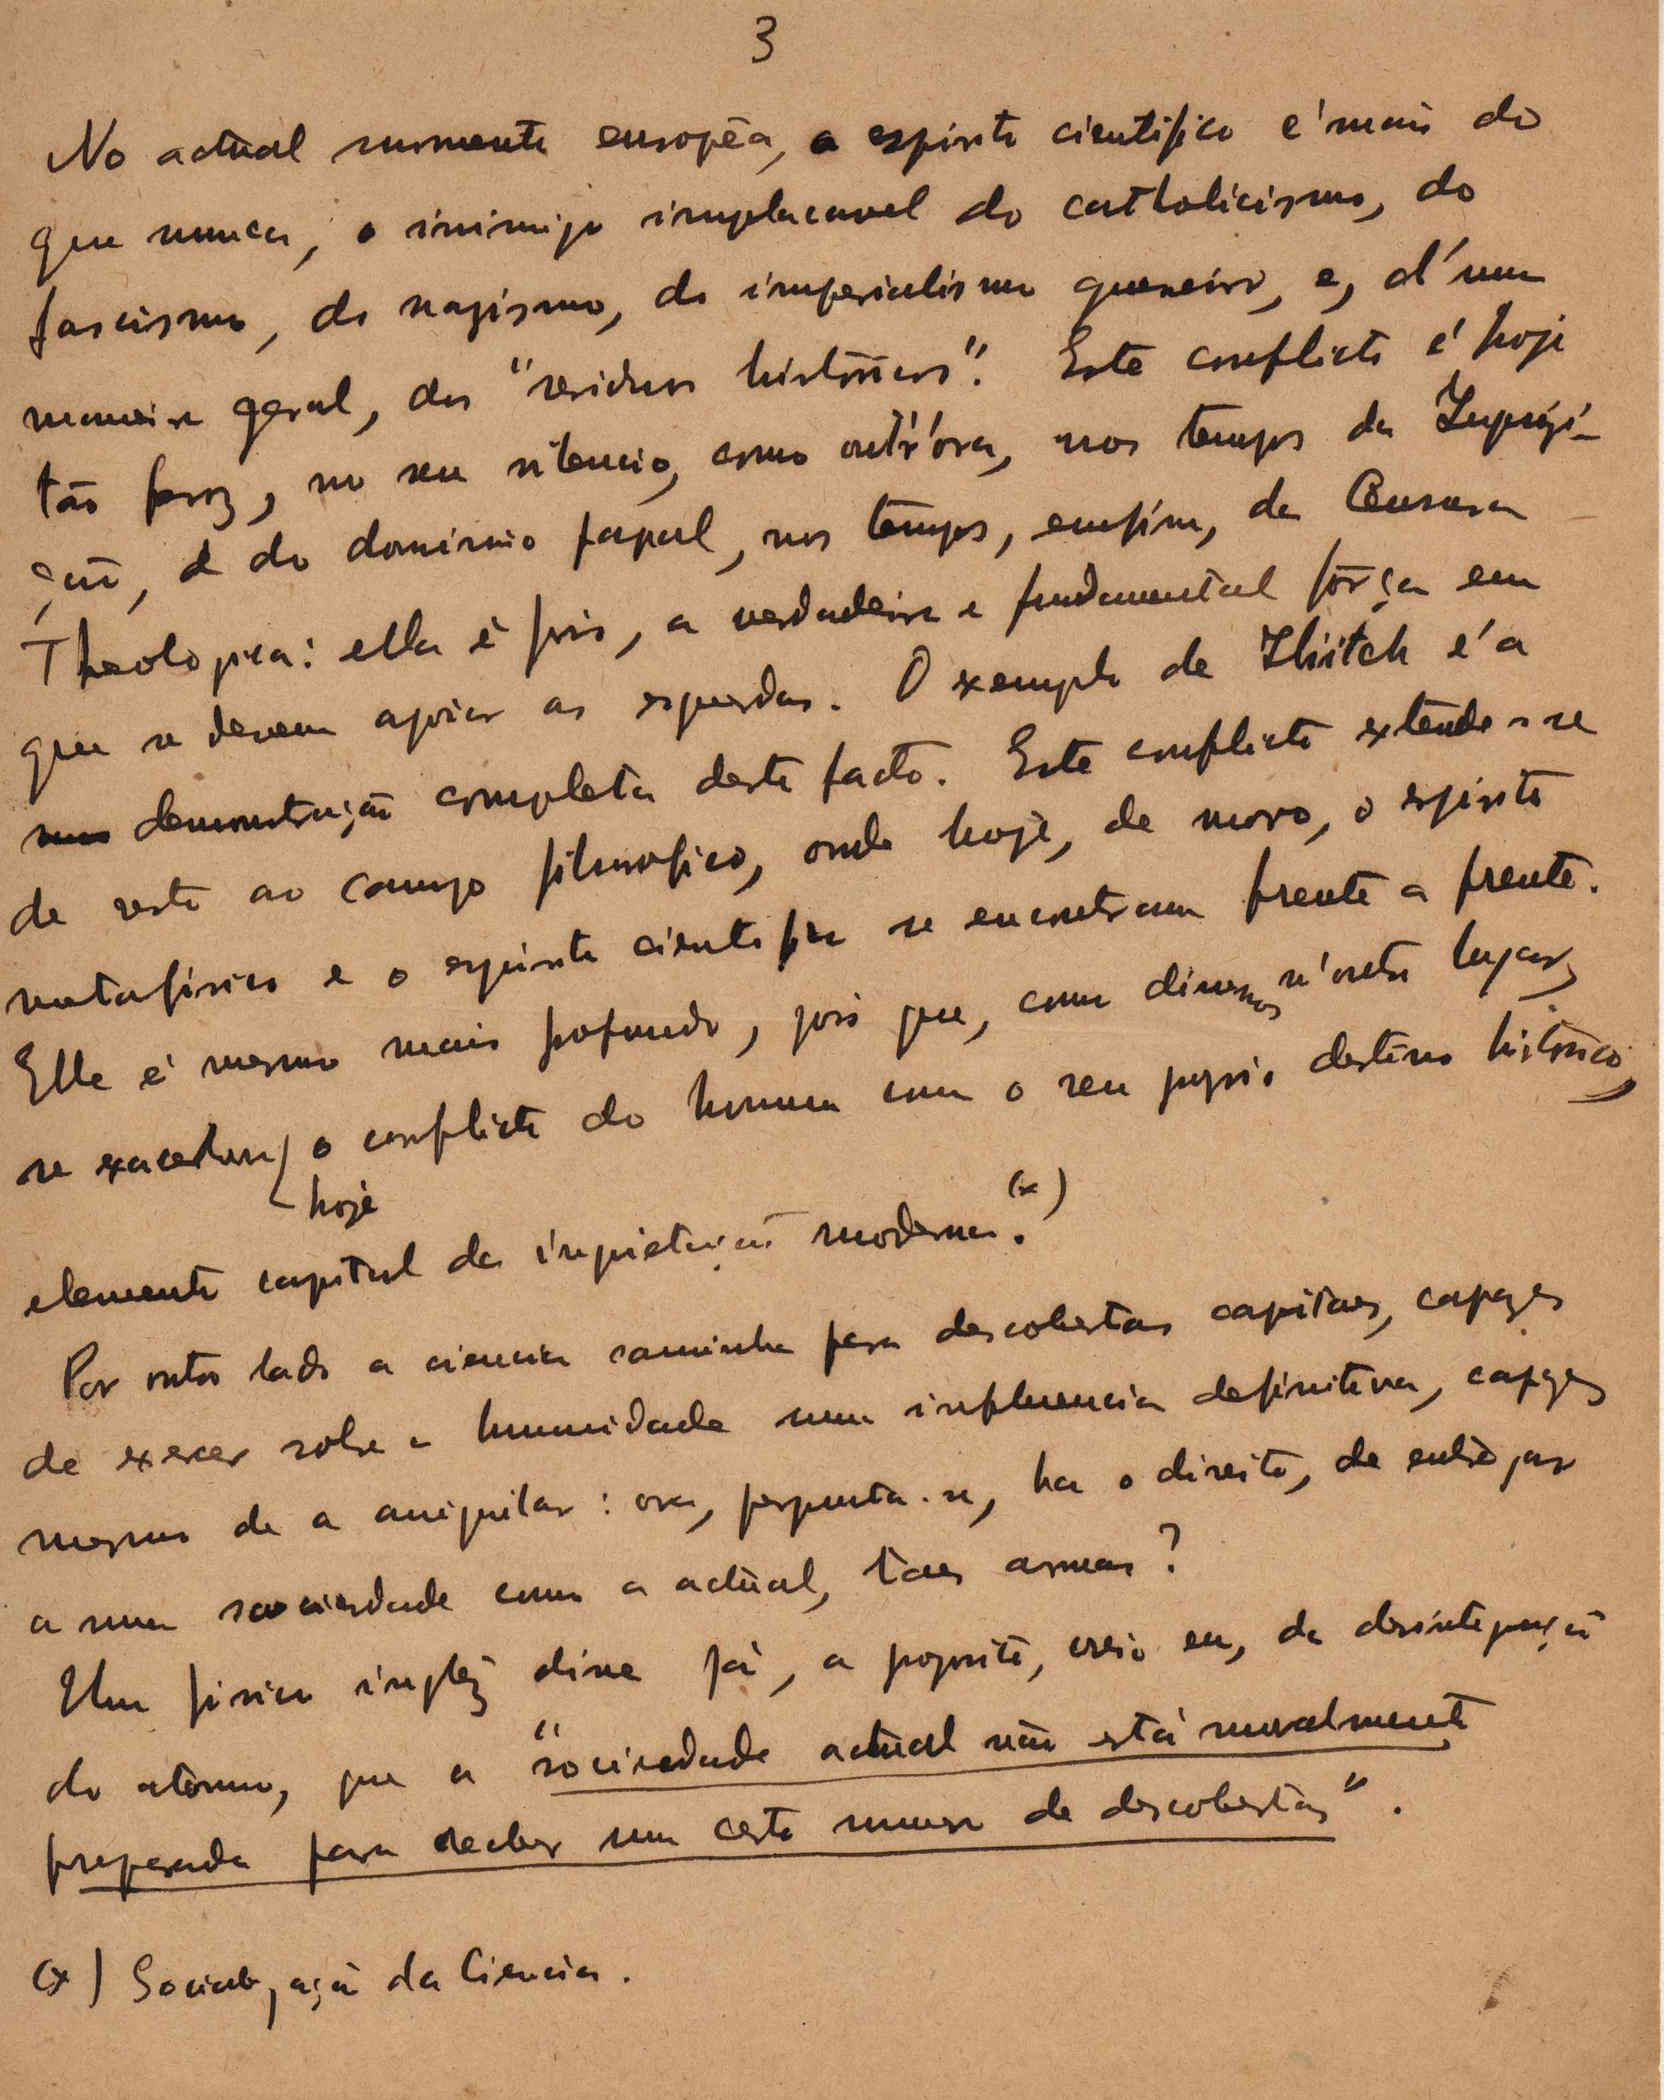 3
No actual momento européu, o espirito cientifico é mais do
que nunca, o inimigo implacavel do catholicismo, do
fascismo, do nazismo, do imperialismo guerreiro, e, d'uma
maneira geral, dos "residuos históricos". Este conflicto é hoje
tão feroz, no seu silencio, como outr'ora, nos tempos da Inquizi-
ção, e do dominio papal, nos tempos, emfim, da Censura
Theologica: ella é pois, a verdadeira e fundamental fôrça em
que se devem apoiar as esquerdas. O exemplo de Illiitch é a
demonstração completa deste facto. Este conflicto extende-se
de resto ao campo filosofico, onde hoje, de novo, o espirito
metafisico e o espirito cientifico se encontram frente a frente.
Elle é mesmo mais profundo, pois que, como dissemos n'outro lugar,
se exacerbou o conflicto do homem com o seu proprio destino historico,
hoje
elemento capital da inquietação moderna. (x)
Por outro lado a ciencia caminha para descobertas capitaes, capazes
de exercer sobre a humanidade uma influencia definitiva, capazes
mesmo de a aniquilar: ora, pergunta-se, ha o direito, de entregar
a uma sociedade como a actual, taes armas?
Um fisico inglêz disse já, a proposito, creio eu, da desintegração
do atomo, que a "sociedade actual não está moralmente
preparada para receber um certo numero de descobertas".
(x) Socialização da Ciencia.